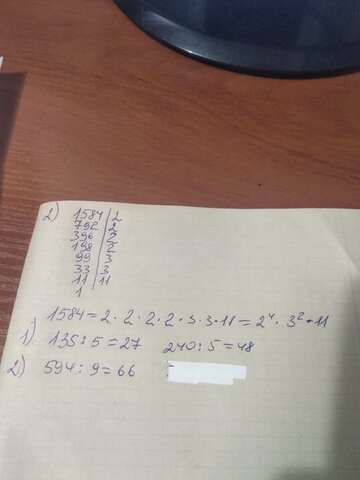 2) 1584 | 2
792 | 2
396 | 2
198 | 2
99 | 3
33 | 3
11 | 11
1
1584 = 2 · 2 · 2 · 2 · 3 · 3 · 11 = 2⁴ · 3² · 11
1) 135 : 5 = 27 240 : 5 = 48
2) 594 : 9 = 66